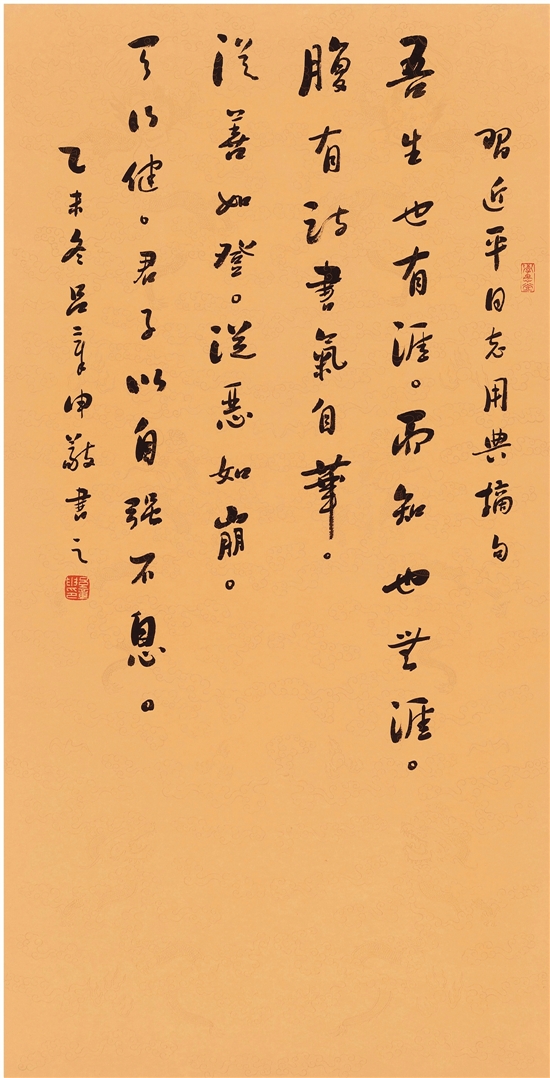 習近平同志用典摘句
吾生也有涯。而知也無涯。
腹有詩書氣自華。
從善如登。從惡如崩。
天行健。君子以自強不息。
乙未冬呂章申敬書之